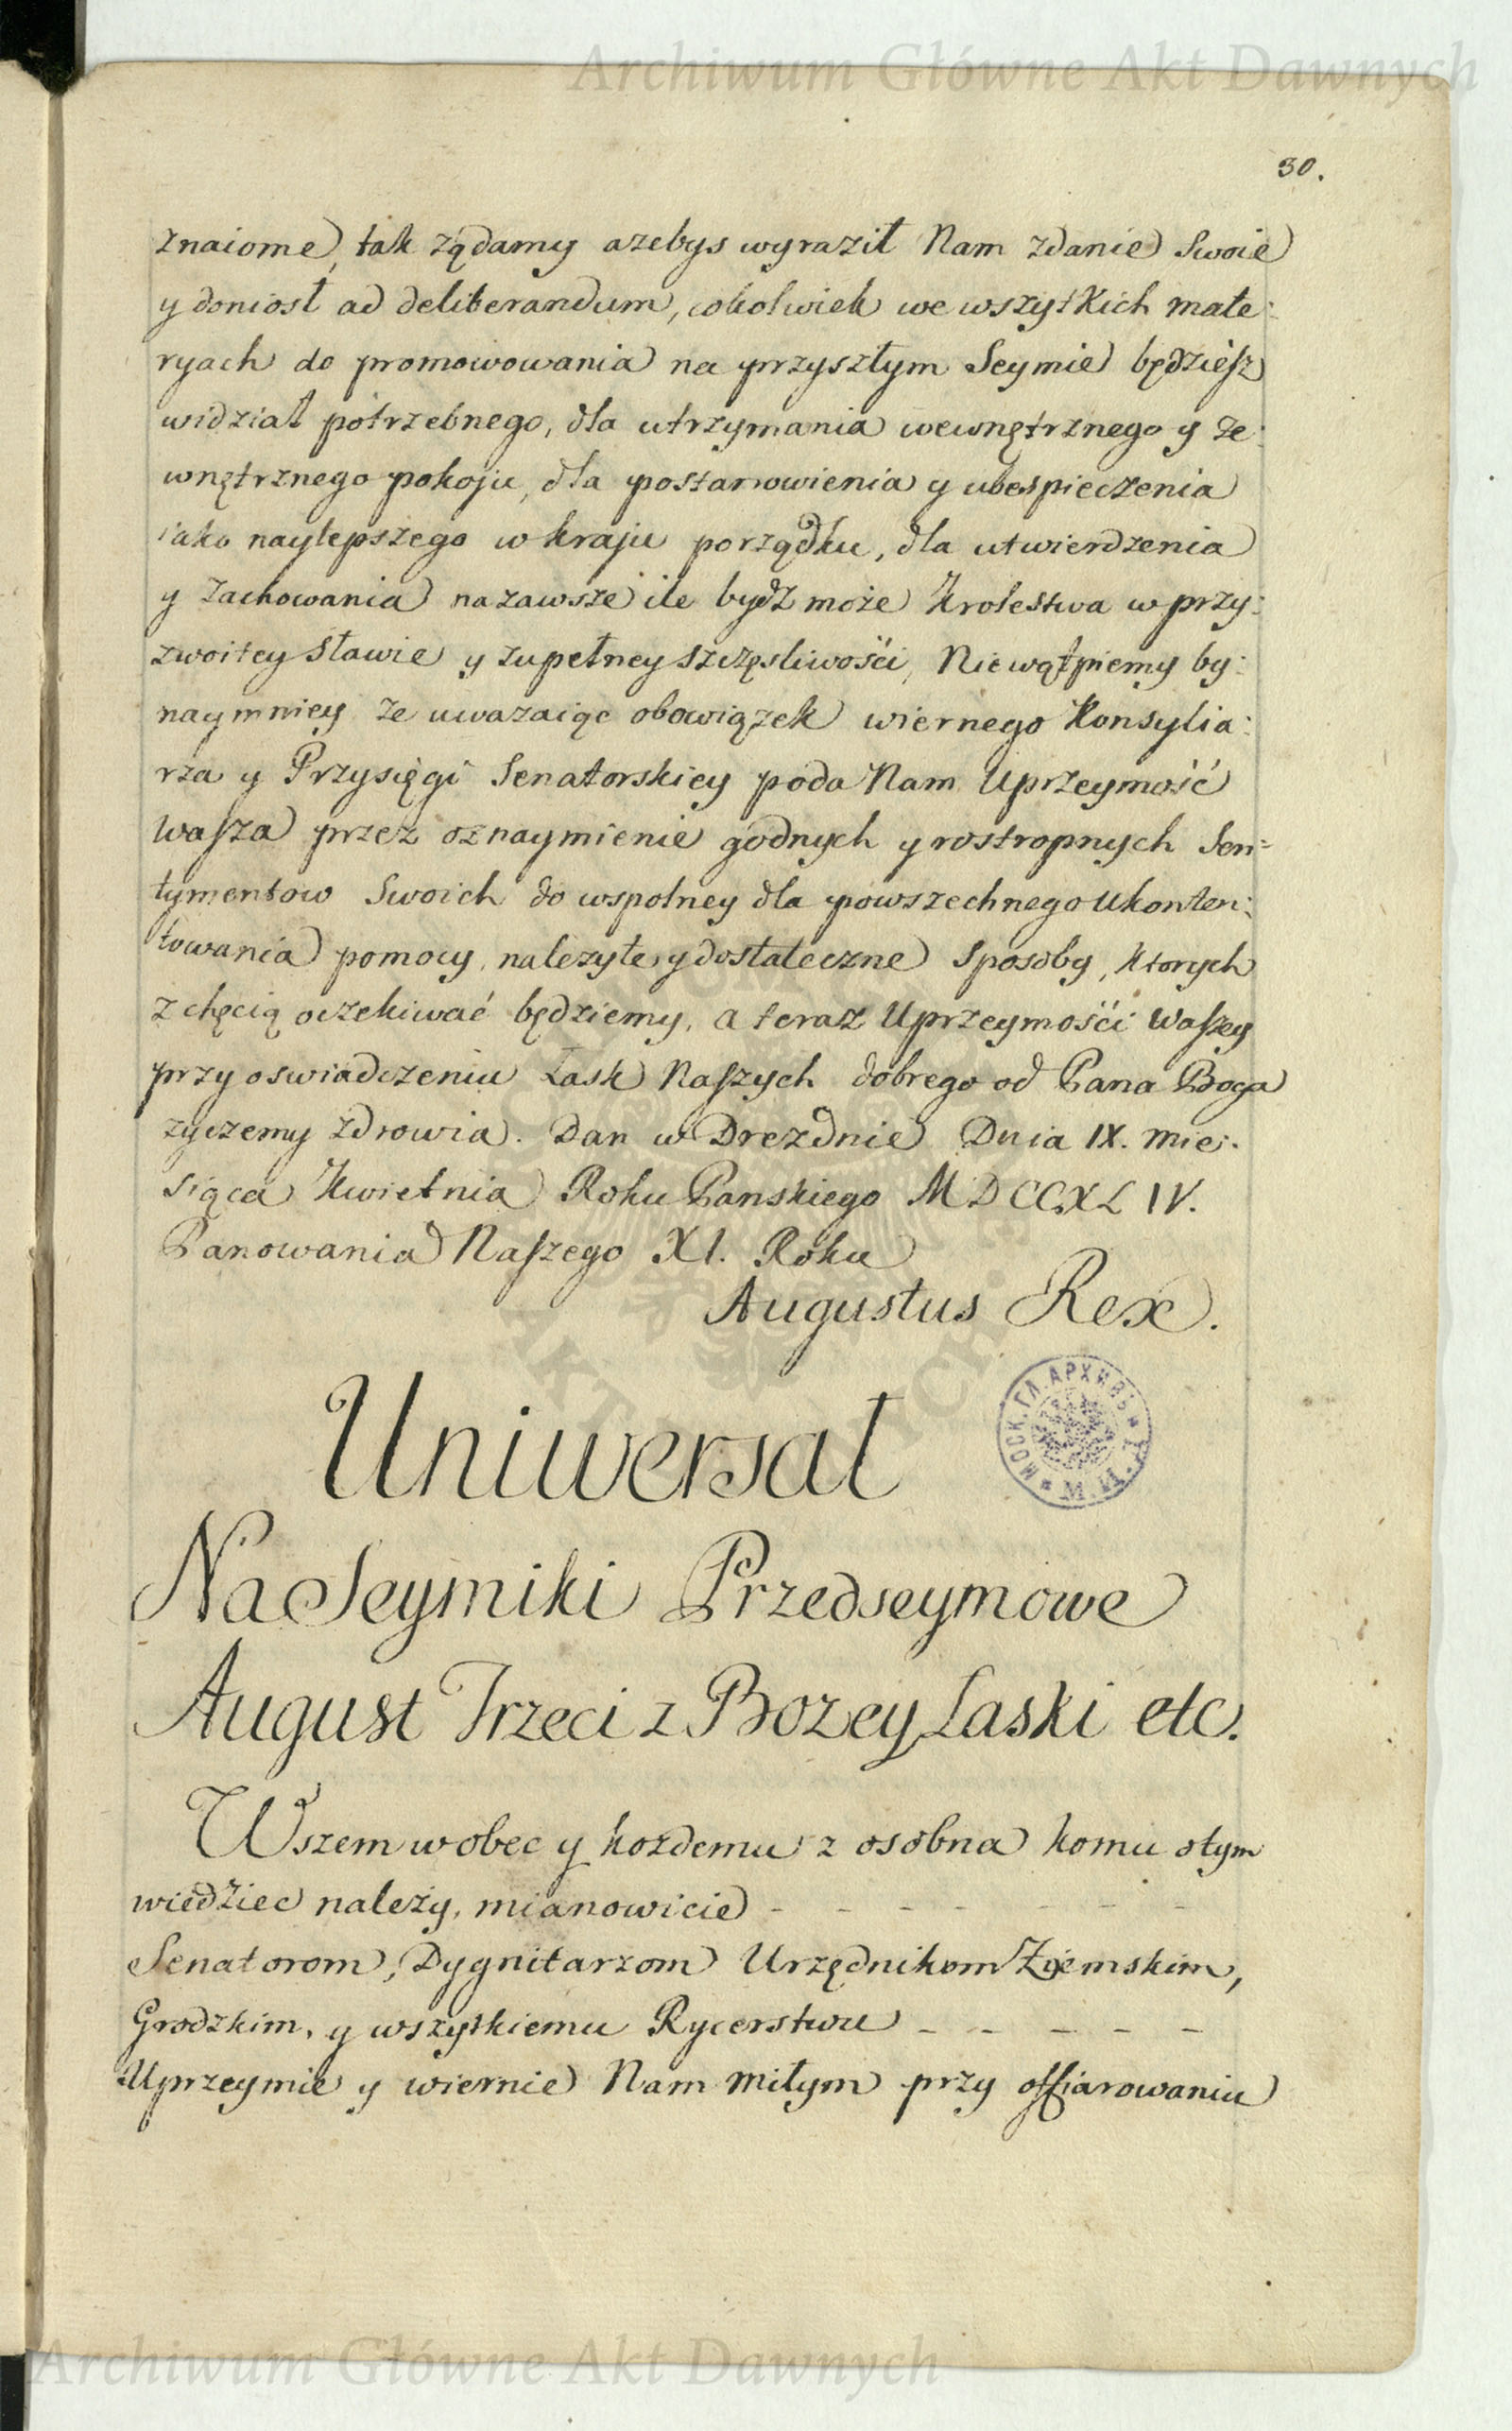 Archiwum Główne Akt Dawnych
30.
znaiome, tak ządamy azebys wyraził Nam zdanie Swoie
y doniosł ad deliberandum, cokolwiek we wszystkich mate:
ryach do promowowania na przyszłym Seymie będziesz
widział potrzebnego, dla utrzymania wewnętrznego y ze:
wnętrznego pokoju, dla postanowienia y ubespieczenia
iako naylepszego w kraju porządku, dla utwierdzenia
y zachowania na zawsze ile bydź może Krolestwa w przy:
zwoitey Sławie y zupełney szczęsliwośći, Niewątpiemy by:
naymniey ze uwazaiąc obowiązek wiernego Konsylia:
rza y Przysięgi Senatorskiey poda Nam Uprzeymość
Wasza przez oznaymienie godnych y rostropnych Sen=
tymentow Swoich do wspolney dla powszechnego Ukonten:
towania pomocy, nalezyte, y dostateczne sposoby, ktorych
z chęcią oczekiwać będziemy, a teraz Uprzeymośći Waszey
przy oswiadczeniu Łask Naszych dobrego od Pana Boga
zyczemy zdrowia. Dan w Dreznie Dnia IX. mie:
siąca Kwietnia Roku Panskiego MDCCXLIV.
Panowania Naszego XI. Roku
Augustus Rex.
МОСК. ГЛ. АРХИВЪ М. И. Д.
Uniwersał
Na Seymiki Przedseymowe
August Trzeci z Bozey Łaski etc.
Wszem wobec y kozdemu z osobna komu o tym
wiedziec należy, mianowicie - - - - - - -
Senatorom, Dygnitarzom Urzędnikom Ziemskim,
Grodzkim, y wszystkiemu Rycerstwu - - - - -
Uprzeymie y wiernie Nam miłym przy offiarowaniu
Archiwum Główne Akt Dawnych